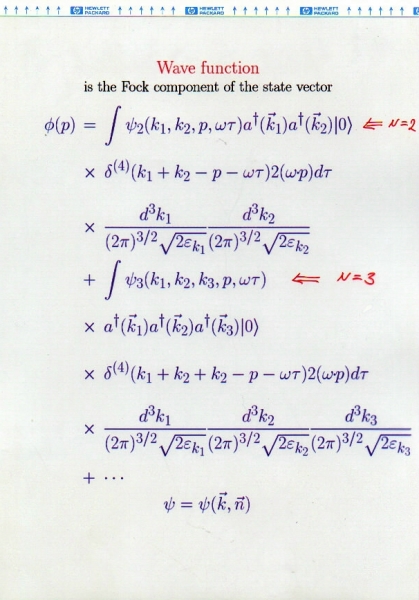 HEWLETT PACKARD HEWLETT PACKARD HEWLETT PACKARD
Wave function
is the Fock component of the state vector
ϕ(p) = ∫ ψ₂(k₁, k₂, p, ωτ)a†(k⃗₁)a†(k⃗₂)|0⟩ ⇐ N=2
× δ⁽⁴⁾(k₁ + k₂ − p − ωτ)2(ω·p)dτ
× d³k₁/((2π)³ᐟ²√2εₖ₁) d³k₂/((2π)³ᐟ²√2εₖ₂)
+ ∫ ψ₃(k₁, k₂, k₃, p, ωτ) ⇐ N=3
× a†(k⃗₁)a†(k⃗₂)a†(k⃗₃)|0⟩
× δ⁽⁴⁾(k₁ + k₂ + k₂ − p − ωτ)2(ω·p)dτ
× d³k₁/((2π)³ᐟ²√2εₖ₁) d³k₂/((2π)³ᐟ²√2εₖ₂) d³k₃/((2π)³ᐟ²√2εₖ₃)
+ ⋯
ψ = ψ(k⃗, n⃗)